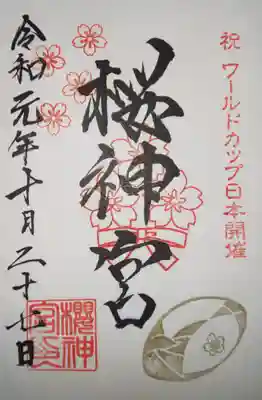 祝 ワールドカップ日本開催
櫻神宮
令和元年十月二十七日
櫻神宮貞